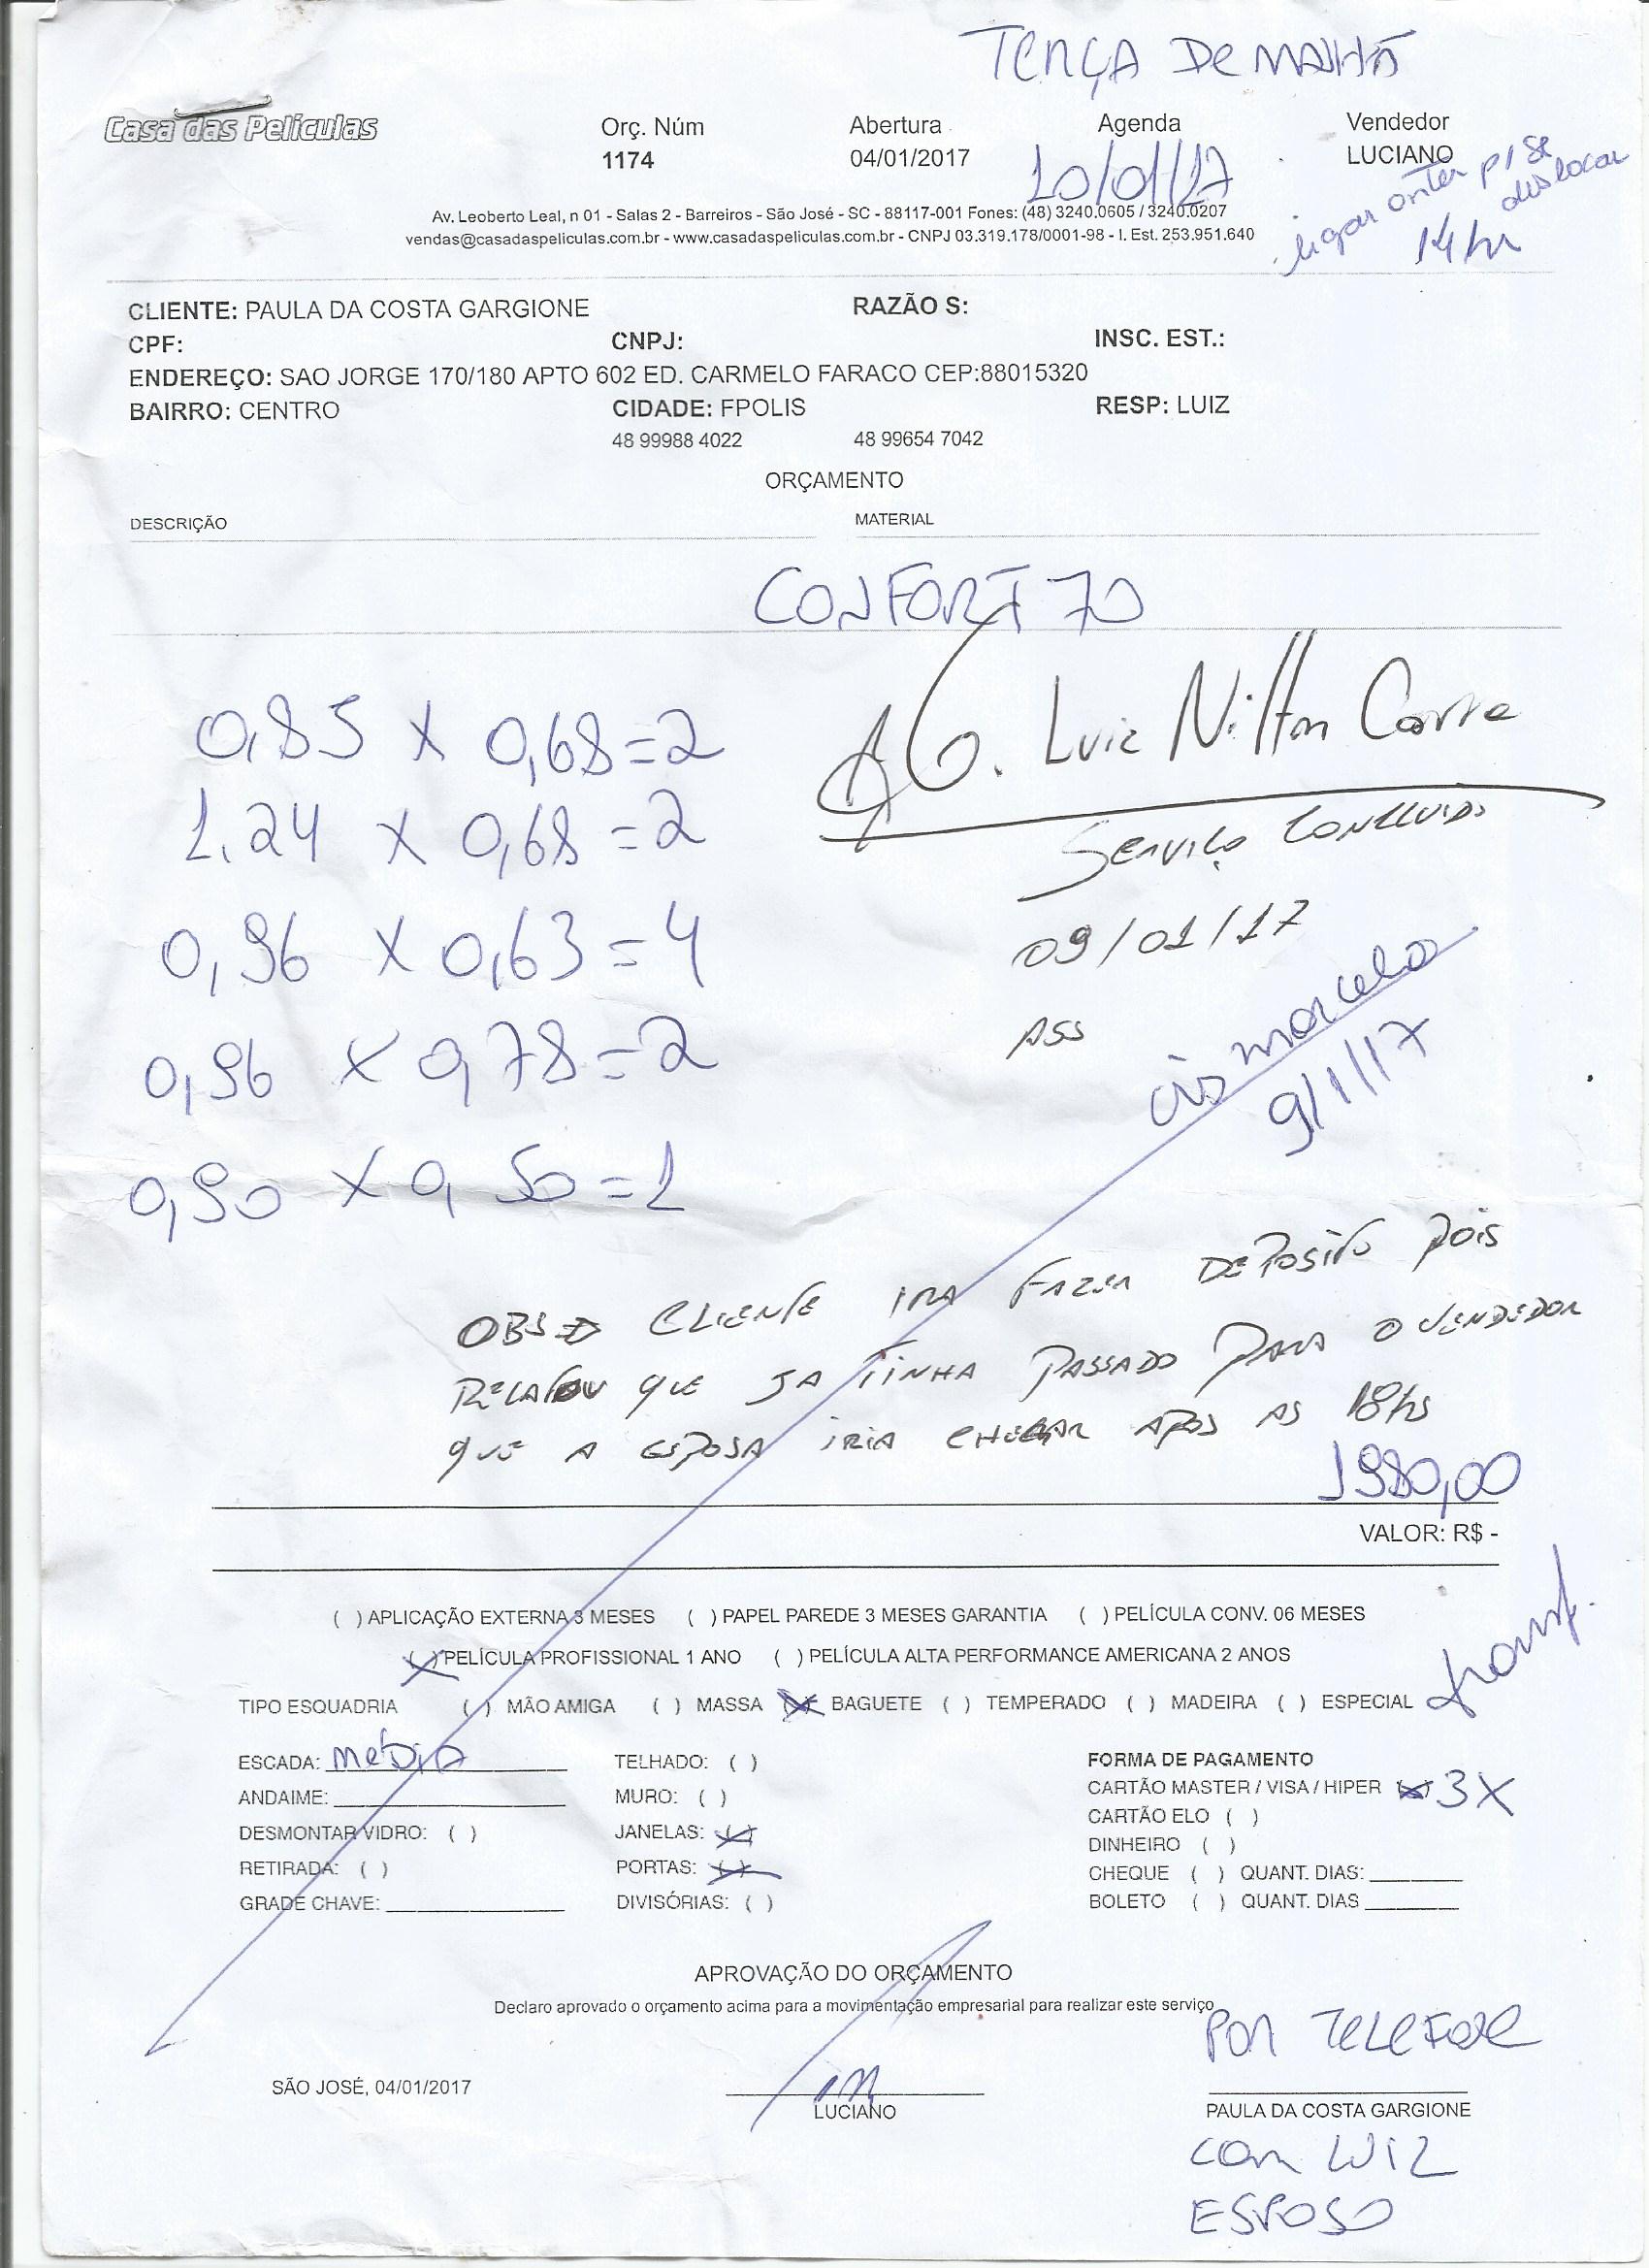 TERÇA DE MANHÃ
Casa das Películas
Orç. Núm Abertura Agenda Vendedor
1174 04/01/2017 10/01/17 LUCIANO
ligar antes p/ se
deslocar
14 hr
Av. Leoberto Leal, n 01 - Salas 2 - Barreiros - São José - SC - 88117-001 Fones: (48) 3240.0605 / 3240.0207
vendas@casadaspeliculas.com.br - www.casadaspeliculas.com.br - CNPJ 03.319.178/0001-98 - I. Est. 253.951.640
CLIENTE: PAULA DA COSTA GARGIONE RAZÃO S:
CPF: CNPJ: INSC. EST.:
ENDEREÇO: SAO JORGE 170/180 APTO 602 ED. CARMELO FARACO CEP:88015320
BAIRRO: CENTRO CIDADE: FPOLIS RESP: LUIZ
48 99988 4022 48 99654 7042
ORÇAMENTO
DESCRIÇÃO MATERIAL
CONFORT 70
0,85 X 0,68 = 2
1.24 X 0,68 = 2
0,96 X 0,63 = 4
0,96 X 0,78 = 2
0,90 X 0,50 = 1
Luiz Nilton
SERVIÇO CONCLUIDO
09/01/17
ASS
marcelo
9/1/17
OBS => CLIENTE IRA FAZER DEPOSITO POIS
RELATOU QUE JA TINHA PASSADO PARA O VENDEDOR
QUE A ESPOSA IRIA CHEGAR APOS AS 18hs
1980,00
VALOR: R$ -
( ) APLICAÇÃO EXTERNA 3 MESES ( ) PAPEL PAREDE 3 MESES GARANTIA ( ) PELÍCULA CONV. 06 MESES
(X) PELÍCULA PROFISSIONAL 1 ANO ( ) PELÍCULA ALTA PERFORMANCE AMERICANA 2 ANOS
transf.
TIPO ESQUADRIA ( ) MÃO AMIGA ( ) MASSA (X) BAGUETE ( ) TEMPERADO ( ) MADEIRA ( ) ESPECIAL
ESCADA: MEDIA TELHADO: ( ) FORMA DE PAGAMENTO
ANDAIME: MURO: ( ) CARTÃO MASTER / VISA / HIPER (X) 3X
CARTÃO ELO ( )
DESMONTAR VIDRO: ( ) JANELAS: (X) DINHEIRO ( )
RETIRADA: ( ) PORTAS: (X) CHEQUE ( ) QUANT. DIAS:
GRADE CHAVE: DIVISÓRIAS: ( ) BOLETO ( ) QUANT. DIAS
APROVAÇÃO DO ORÇAMENTO
Declaro aprovado o orçamento acima para a movimentação empresarial para realizar este serviço
POR TELEFONE
SÃO JOSÉ, 04/01/2017 LUCIANO PAULA DA COSTA GARGIONE
COM LUIZ
ESPOSO